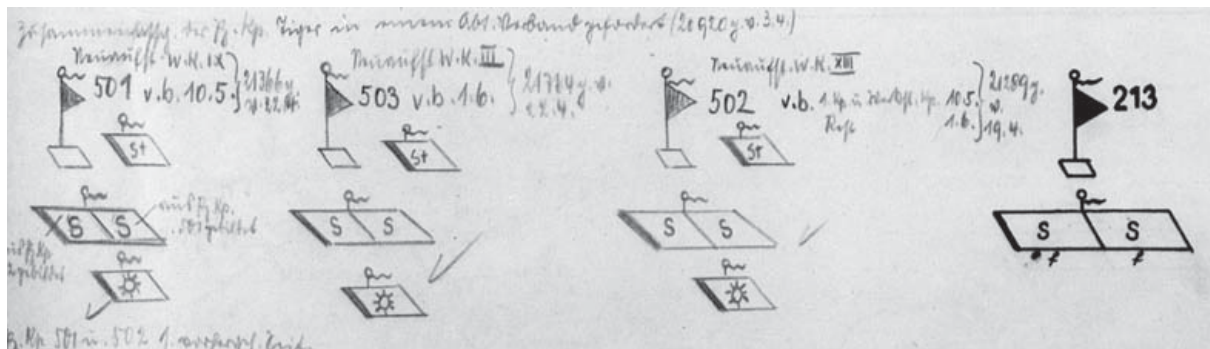 Zusammenfassg. der Pz. Kp. Tiger in einem Abt. Verband gefordert (20920 g. v. 3.4.)
Neuaufst. W.K. IX
501 v.b. 10.5.
21366 g.
v. 22.4.
St
S S
aus Pz. Kp.
501 gebildet
aus Pz. Kp.
gebildet
Neuaufst. W.K. III
503 v.b. 1.6.
g. v.
22.4.
St
S S
Neuaufst. W.K. XIII
502 v.b. 1. Kp. u. Werkst. Kp. 10.5.
Rest 1.6.
21289 g.
v.
19.4.
St
S S
213
S S
Kp 501 u. 502